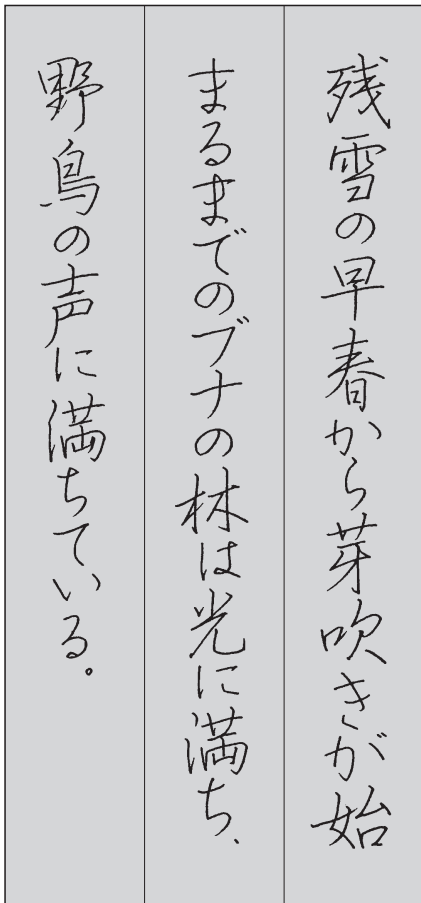 残雪の早春から芽吹きが始
まるまでのブナの林は光に満ち、
野鳥の声に満ちている。